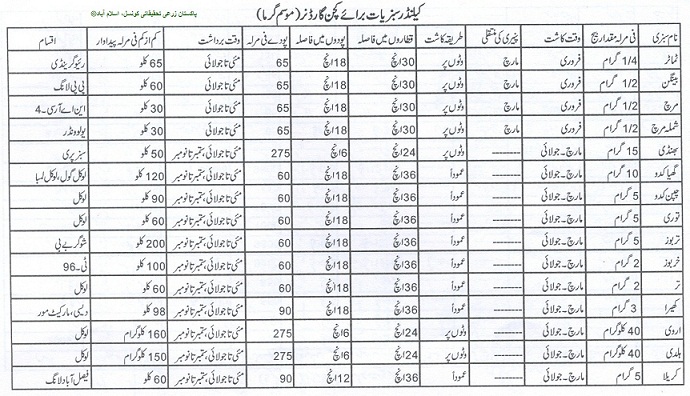 پاکستان زرعی تحقیقاتی کونسل، اسلام آباد@
کیلنڈر سبزیات برائے کچن گارڈنر (موسم گرما)
نام سبزی فی مرلہ مقدار بیج وقت کاشت پنیری کی منتقلی طریقہ کاشت قطاروں میں فاصلہ پودوں میں فاصلہ پودے فی مرلہ وقت برداشت کم از کم فی مرلہ پیداوار اقسام
ٹماٹر 1/4 گرام فروری مارچ وٹوں پر 30انچ 18انچ 65 مئی تا جولائی 65 کلو ریوگرینڈی
بینگن 1/2 گرام فروری مارچ وٹوں پر 30انچ 18انچ 65 مئی تا جولائی 60 کلو پی پی لانگ
مرچ 1/2 گرام فروری مارچ وٹوں پر 30انچ 18انچ 65 مئی تا جولائی 30 کلو این اے آر سی۔4
شملہ مرچ 1/2 گرام فروری مارچ وٹوں پر 30انچ 18انچ 65 مئی تا جولائی 30 کلو یولوونڈر
بھنڈی 15 گرام مارچ۔جولائی -------- وٹوں پر 24انچ 6انچ 275 مئی تا جولائی، ستمبر تا نومبر 50 کلو سبز پری
گھیا کدو 10 گرام مارچ۔جولائی -------- عموداً 36انچ 18انچ 60 مئی تا جولائی، ستمبر تا نومبر 120 کلو لوکل گول، لوکل لمبا
چپن کدو 5 گرام مارچ۔جولائی -------- عموداً 36انچ 18انچ 60 مئی تا جولائی، ستمبر تا نومبر 90 کلو لوکل
توری 5 گرام مارچ۔جولائی -------- عموداً 36انچ 18انچ 60 مئی تا جولائی، ستمبر تا نومبر 60 کلو لوکل
تربوز 5 گرام مارچ۔جولائی -------- عموداً 36انچ 18انچ 60 مئی تا جولائی، ستمبر تا نومبر 200 کلو شوگر بے بی
خربوز 2 گرام مارچ۔جولائی -------- عموداً 36انچ 18انچ 60 مئی تا جولائی، ستمبر تا نومبر 100 کلو ٹی۔96
تر 2 گرام مارچ۔جولائی -------- عموداً 36انچ 18انچ 60 مئی تا جولائی، ستمبر تا نومبر 60 کلو لوکل
کھیرا 3 گرام مارچ۔جولائی -------- عموداً 36انچ 18انچ 90 مئی تا جولائی، ستمبر تا نومبر 98 کلو دیسی، مارکیٹ مور
اروی 40 کلوگرام مارچ۔جولائی -------- وٹوں پر 24انچ 6انچ 275 مئی تا جولائی، ستمبر تا نومبر 160 کلوگرام لوکل
ہلدی 40 کلوگرام مارچ۔جولائی -------- وٹوں پر 24انچ 6انچ 275 مئی تا جولائی، ستمبر تا نومبر 150 کلوگرام لوکل
کریلا 5 گرام مارچ۔جولائی -------- عموداً 36انچ 12انچ 90 مئی تا جولائی، ستمبر تا نومبر 60 کلو فیصل آباد لانگ